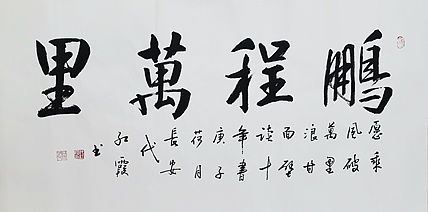 鵬程萬里
愿乘
風破
萬里
浪甘
面壁
读十
年書
庚子
荷月
長安
代
红霞
书